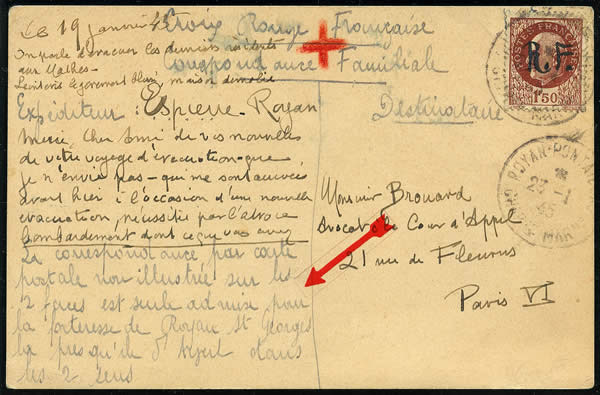 Le 19 janvier 45
Croix Rouge Française
Correspondance Familiale
On parle d'évacuer les derniers
aux Mathes
maison démolie
Expéditeur : Espierre Royan
Destinataire
Merci, Cher Ami de vos nouvelles
de votre voyage d'évacuation que
je n'envie pas - qui me sont arrivées
avant hier à l'occasion d'une nouvelle
évacuation nécessitée par l'atroce
bombardement dont ce que vous avez
La correspondance par carte
postale non illustrée sur les
2 faces est seule admise pour
la forteresse de Royan St Georges
la presqu'île d'Arvert dans
les 2 sens
Monsieur Brouard
Avocat à la Cour d'Appel
21 rue de Fleurus
Paris VI
POSTES FRANÇAISES
R.F.
1F50
ROYAN-PONTAILLAC
23-1
45